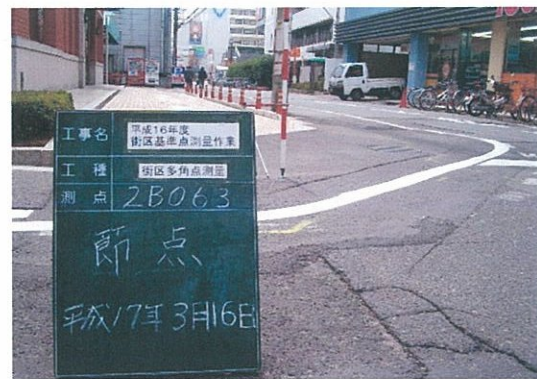 工事名
平成16年度
街区基準点測量作業
工種
街区多角点測量
測点
2B063
節点
平成17年3月16日